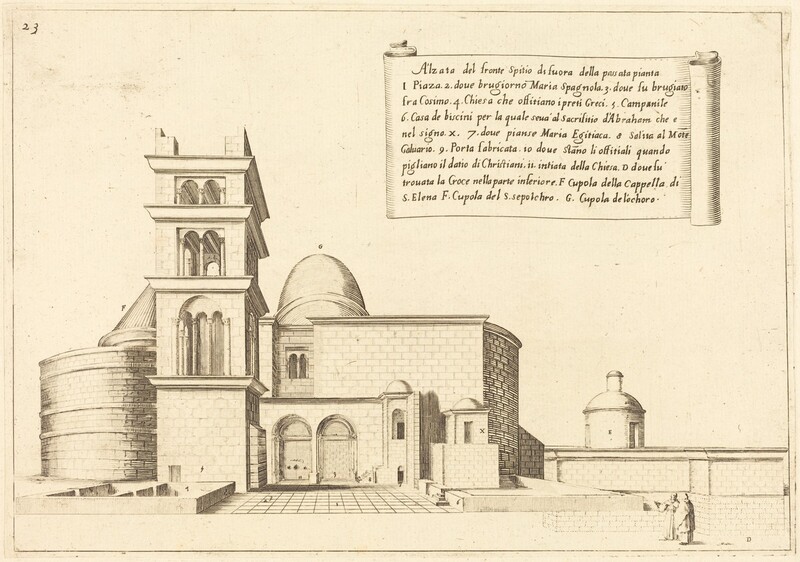 23
Alzata del fronte Spitio di fuora della passata pianta
1 Piaza. 2. doue brugiorno Maria Spagnola. 3. doue fu brugiato
fra Cosimo. 4. Chiesa che offitiano i preti Greci. 5. Campanile
6. Casa de biscini per la quale seua al Sacrifitio d'Abraham che e
nel signo. X. 7. doue pianse Maria Egitiaca. 8 Salita al Mote
Caluario. 9. Porta fabricata. 10 doue stano li offitiali quando
pigliano il datio di Christiani. 11. intiata della Chiesa. D doue fu
trouata la Croce nella parte inferiore. F Cupola della Cappella di
S. Elena F. Cupola del S. sepolchro. G. Cupola del choro.
G
F
X
E
D